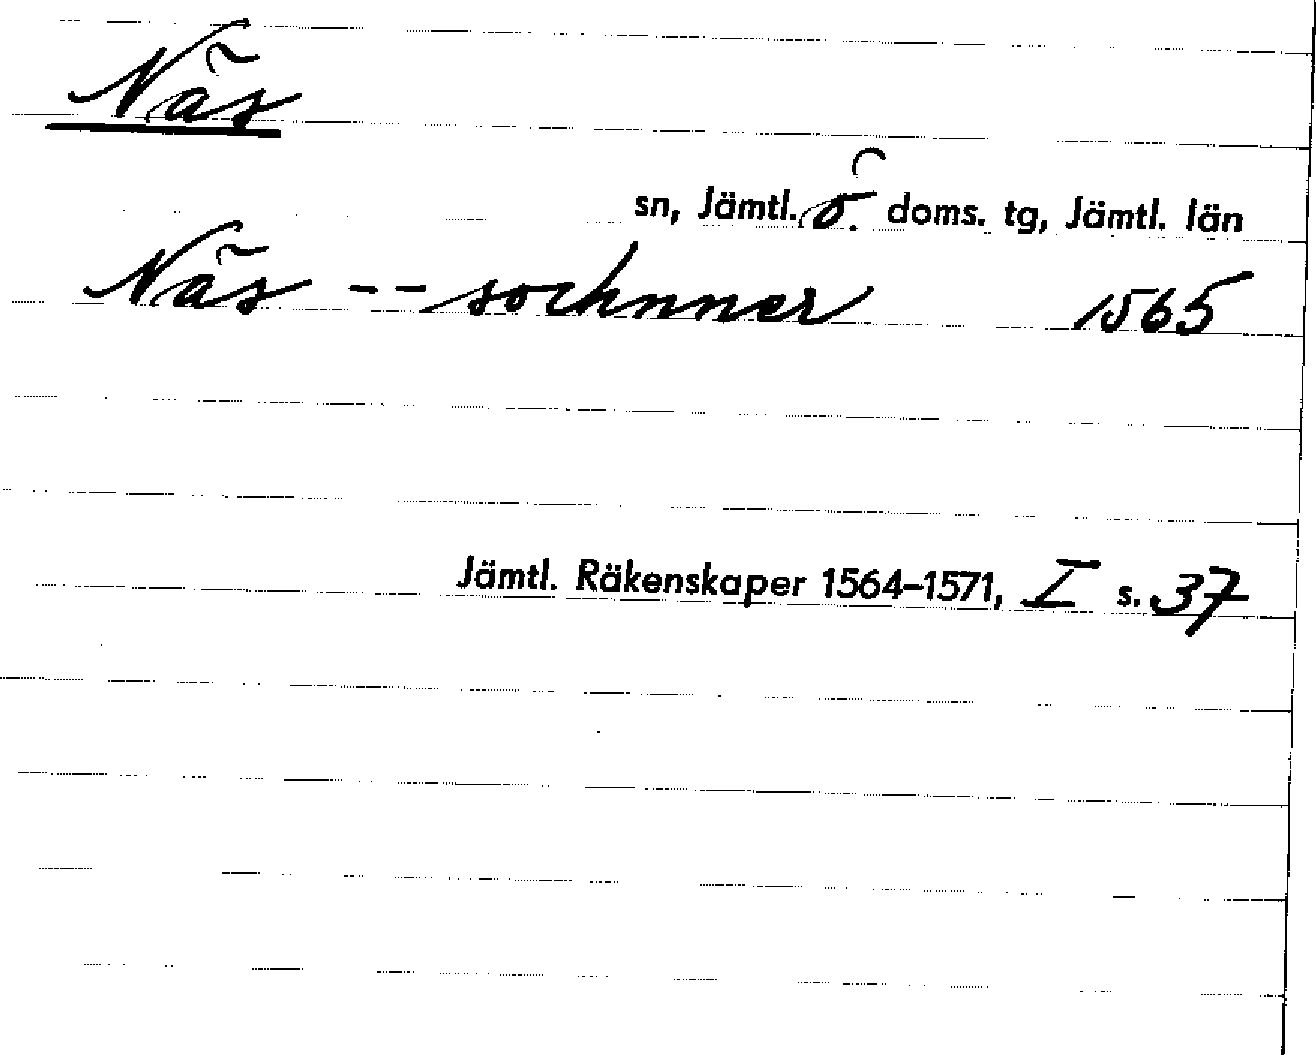 Näs
sn, Jämtl. ö. doms. tg, Jämtl. län
Näs -- sochnner 1565
Jämtl. Räkenskaper 1564-1571, I s. 37